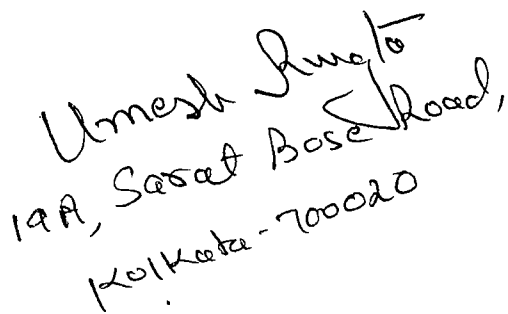 Umesh
19A, Sarat Bose Road,
Kolkata-700020